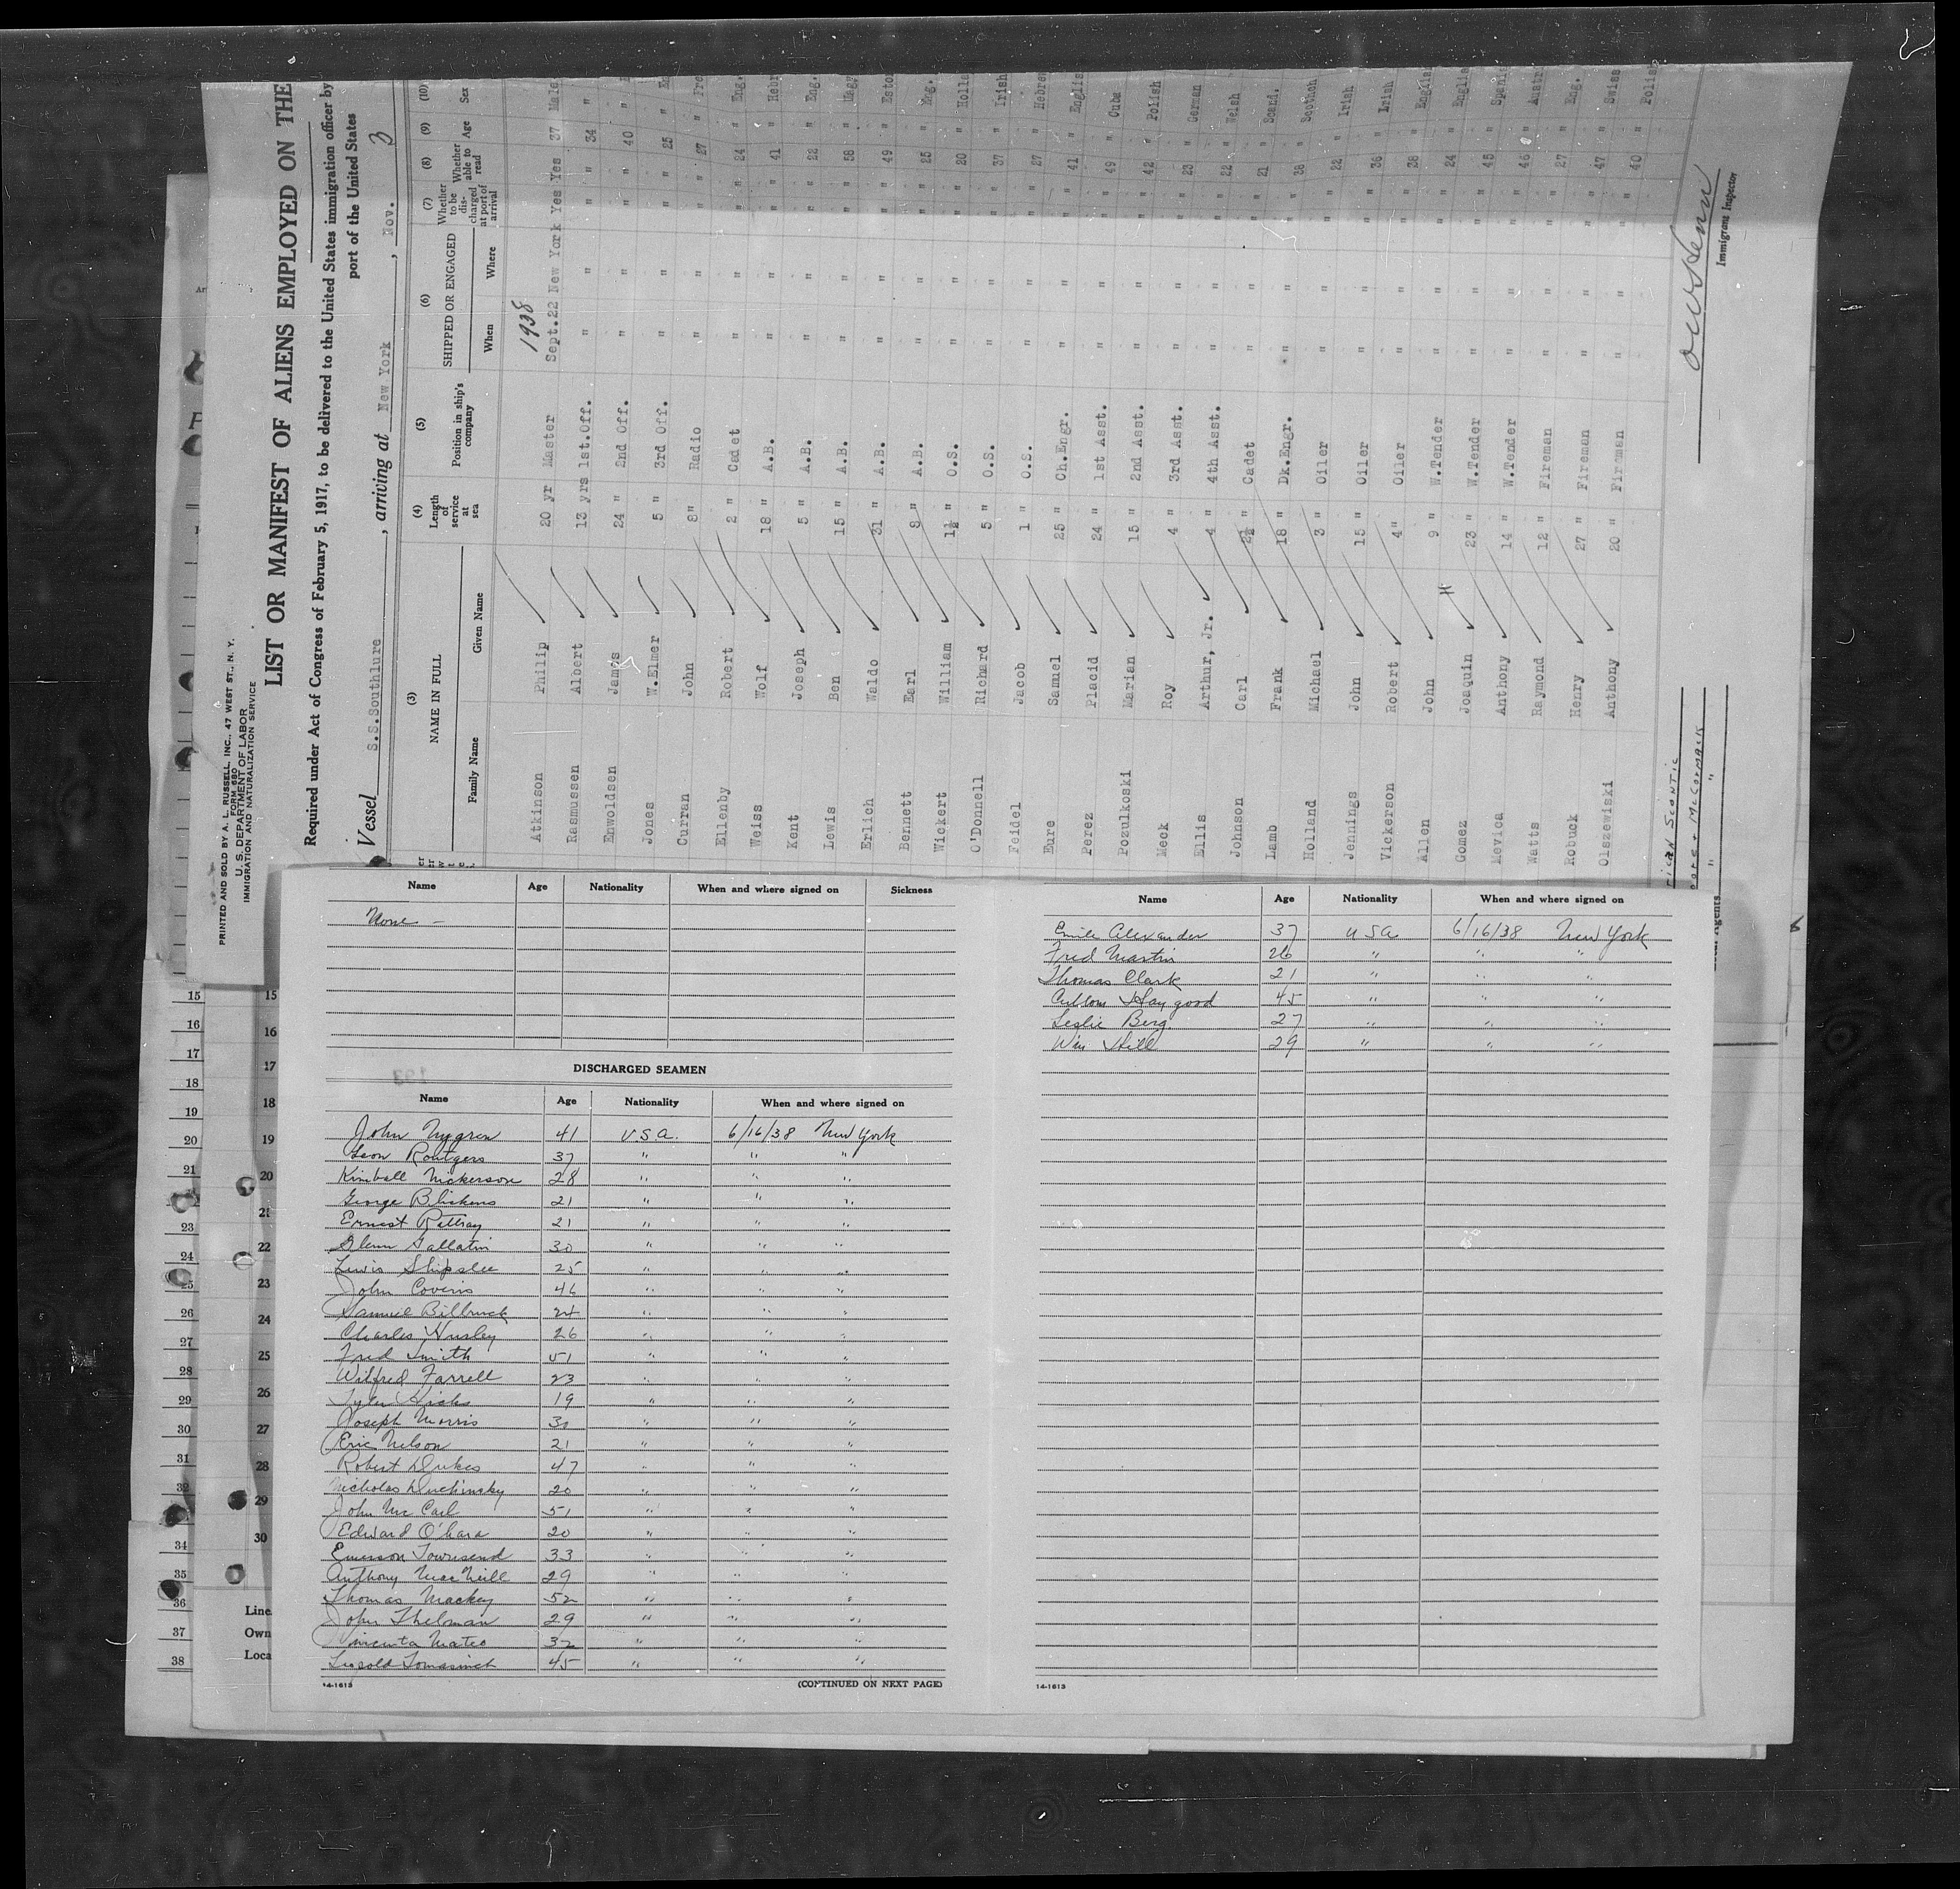 PRINTED AND SOLD BY A. L. RUSSELL, INC., 47 WEST ST., N. Y.
FORM 680
U. S. DEPARTMENT OF LABOR
IMMIGRATION AND NATURALIZATION SERVICE
LIST OR MANIFEST OF ALIENS EMPLOYED ON THE
Required under Act of Congress of February 5, 1917, to be delivered to the United States immigration officer by
port of the United States
Vessel S.S.Southlure, arriving at New York, Nov. 3
(3) (4) (5) (6) (7) (8) (9) (10)
NAME IN FULL Length of service at sea Position in ship's company SHIPPED OR ENGAGED Whether to be discharged at port of arrival Whether able to read Age Sex
Family Name Given Name When Where
1938
Atkinson Philip 20 yr Master Sept.22 New York Yes Yes 37 Male
Rasmussen Albert 13 yrs 1st.Off. " " " " 34 "
Enwoldsen James 24 " 2nd Off. " " " " 40 "
Jones W.Elmer 5 " 3rd Off. " " " " 25 "
Curran John 8" Radio " " " " 27 "
Ellenby Robert 2 " Cadet " " " " 24 " Eng.
Weiss Wolf 18 " A.B. " " " " 41 " Hebr
Kent Joseph 5 " A.B. " " " " 22 " Eng.
Lewis Ben 15 " A.B. " " " " 58 "
Erlich Waldo 31 " A.B. " " " " 49 " Esto
Bennett Earl 8 " A.B. " " " " 25 " Eng.
Wickert William 1½ " O.S. " " " " 20 " Holla
O'Donnell Richard 5 " O.S. " " " " 37 " Irish
Feidel Jacob 1 " O.S. " " " " 27 " Hebrew
Eure Samuel 25 " Ch.Engr. " " " " 41 " Englis
Perez Placid 24 " 1st Asst. " " " " 49 " Cuba
Pozulkoski Marian 15 " 2nd Asst. " " " " 42 " Polish
Meck Roy 4 " 3rd Asst. " " " " 23 " German
Ellis Arthur, Jr. 4 " 4th Asst. " " " " 22 " Welsh
Johnson Carl 2½ " Cadet " " " " 21 " Scand.
Lamb Frank 18 " Dk.Engr. " " " " 38 "
Holland Michael 3 " Oiler " " " " 22 " Irish
Jennings John 15 " Oiler " " " " 36 " Irish
Vickerson Robert 4" Oiler " " " " 38 " English
Allen John 9 " W.Tender " " " " 24 " Englis
Gomez Joaquin 23 " W.Tender " " " " 45 " Spanis
Mevica Anthony 14 " W.Tender " " " " 46 " Austr
Watts Raymond 12 " Fireman " " " " 27 " Eng.
Robuck Henry 27 " Fireman " " " " 47 " Swiss
Olszewiski Anthony 20 " Fireman " " " " 40 " Polis
Immigrant Inspector
Name Age Nationality When and where signed on Sickness
None -
DISCHARGED SEAMEN
Name Age Nationality When and where signed on
John Nygren 41 U.S.A. 6/16/38 New York
Leon Rontgers 37 " " "
Kimball Nickerson 28 " " "
George Blickens 21 " " "
Ernest Rattray 21 " " "
Glenn Gallatin 30 " " "
Lewis Shipslee 25 " " "
John Coveris 46 " " "
Samuel Billruck 24 " " "
Charles Hursley 26 " " "
Fred Smith 51 " " "
Wilfred Farrell 23 " " "
Tyler Hicks 19 " " "
Joseph Morris 31 " " "
Eric Nelson 21 " " "
Robert Dukes 47 " " "
Nicholas Duchinsky 20 " " "
John McCarl 51 " " "
Edward O'hara 20 " " "
Emerson Townsend 33 " " "
Anthony MacNeill 29 " " "
Thomas Mackey 52 " " "
John Thelman 29 " " "
Mateo 32 " " "
45 " " "
14-1613 (CONTINUED ON NEXT PAGE)
Name Age Nationality When and where signed on
Emile Alexander 37 USA 6/16/38 New York
Fred Martin 26 " " "
Thomas Clark 21 " " "
Cullom Haygood 45 " " "
Leslie Berg 27 " " "
Wm Hill 29 " " "
14-1613
15
16
17
18
19
20
21
23
24
25
26
27
28
29
30
31
32
34
35
36
37
38
15
16
17
18
19
20
21
22
23
24
25
26
27
28
29
30
Line
Own
Loca